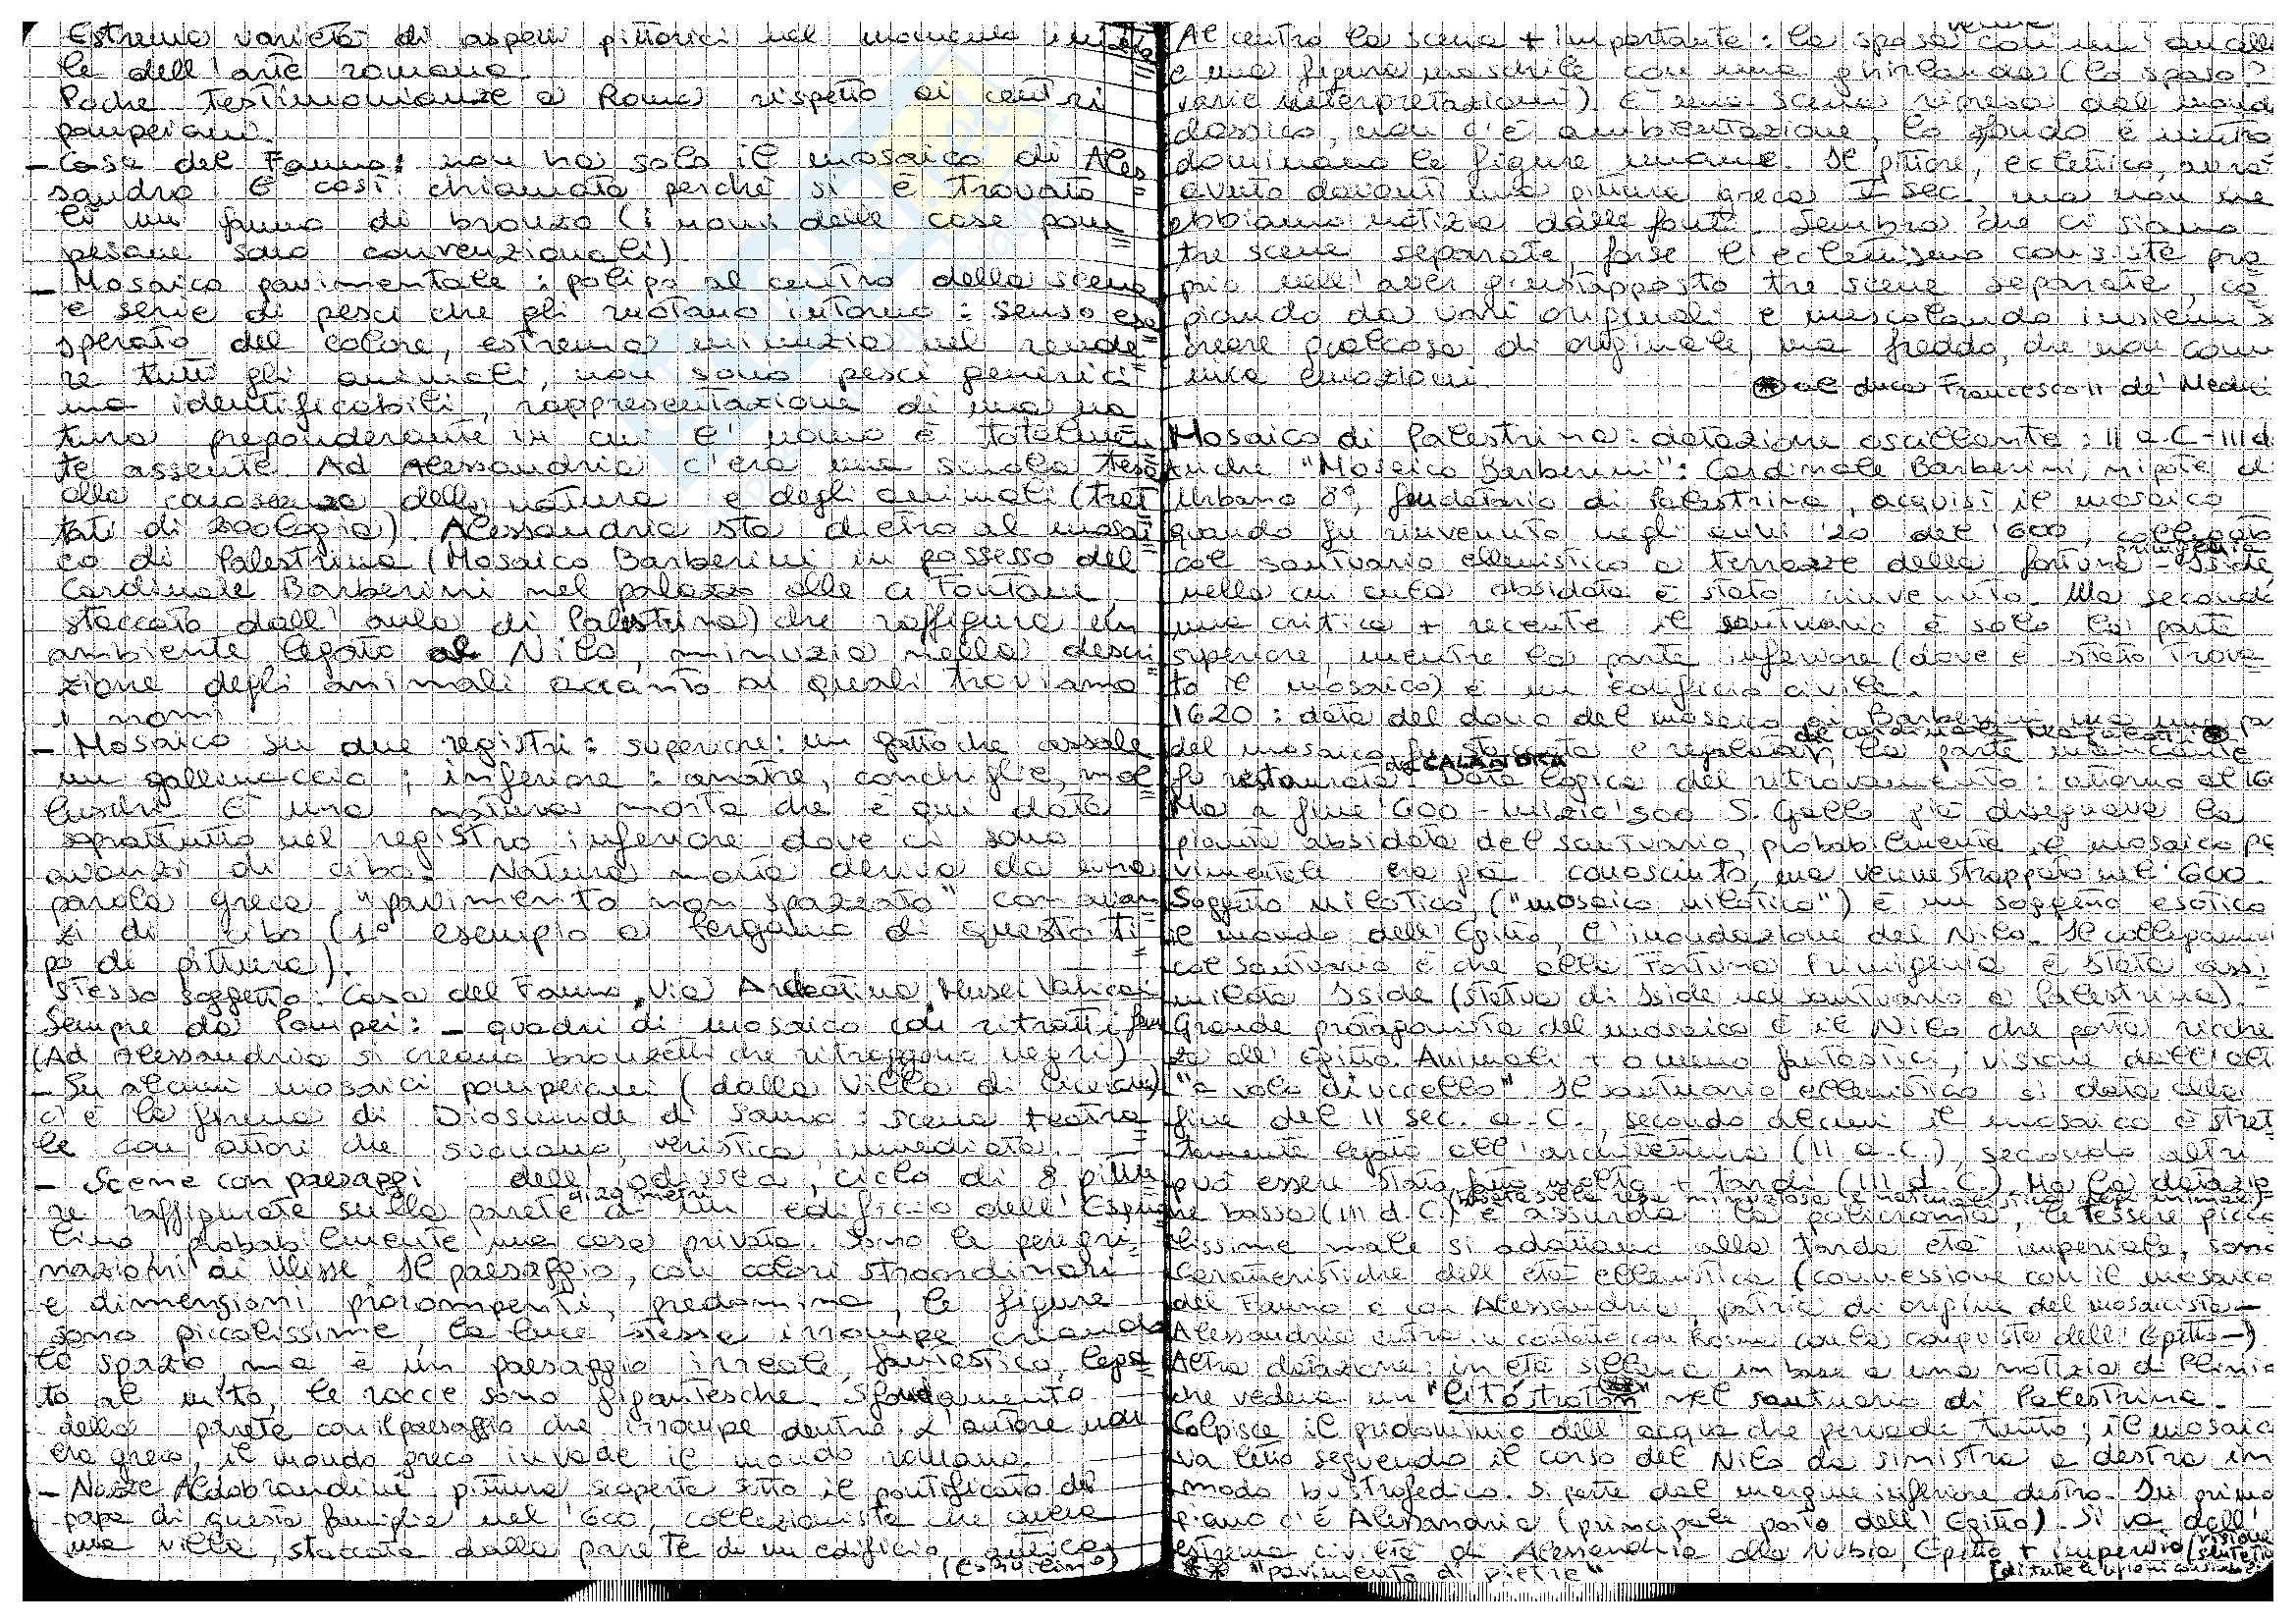 Estrema varietà di aspetti pittorici nel momento inizia=
le dell'arte romana.
Poche testimonianze a Roma rispetto ai centri
pompeiani.
- Casa del Fauno: non ha solo il mosaico di Ales=
sandro. È così chiamata perché si è trovato
lì un fauno di bronzo (i nomi delle case pom=
peiane sono convenzionali)
- Mosaico pavimentale: polipo al centro della scena
e serie di pesci che gli ruotano intorno: senso esa=
sperato del colore, estrema minuzia nel rende=
re tutti gli animali, non sono pesci generici
ma identificabili, rappresentazione di una na
tura preponderante in cui l'uomo è totalmen=
te assente. Ad Alessandria c'era una scuola tesa
alla conoscenza della natura e degli animali (trat=
tati di zoologia). Alessandria sta dietro al mosai=
co di Palestrina (Mosaico Barberini in possesso del
Cardinale Barberini nel palazzo alle 4 Fontane,
staccato dall'aula di Palestrina) che raffigura un
ambiente legato al Nilo, minuzia nella descri=
zione degli animali accanto ai quali troviamo
i nomi.
- Mosaico su due registri: superiore: un gatto che assale
un gallinaccio; inferiore: anatre, conchiglie, mol=
luschi. È una natura morta che è qui data
soprattutto nel registro inferiore dove ci sono
avanzi di cibo. Natura morta deriva da una
parola greca "pavimento non spazzato" con avan=
zi di cibo (1° esempio a Pergamo di questo ti=
po di pittura).
Stesso soggetto: Casa del Fauno, Via Ardeatina, Musei Vaticani
Sempre da Pompei: - quadri di mosaico con ritratti
(Ad Alessandria si creano bronzetti che ritraggono negri)
- Su alcuni mosaici pompeiani (dalla Villa di Cicerone)
c'è la firma di Dioscuride di Samo: scena teatra=
le con attori che suonano, veristica, immediata.
- Scene con paesaggi dell'odissea, ciclo di 8 pittu=
re raffigurate sulla parete di un edificio dell'Esqui=
lino, probabilmente una casa privata. Sono le peregri=
nazioni di Ulisse. Il paesaggio, con colori straordinari
e dimensioni prorompenti, predomina, le figure
sono piccolissime, la luce stessa irrompe creando
lo spazio, ma è un paesaggio irreale, fantastico, lega=
to al mito, le rocce sono gigantesche. Sfondamento
della parete con il paesaggio che irrompe dentro. L'autore non
era greco, il mondo greco invade il mondo romano.
- Nozze Aldobrandini: pittura scoperta sotto il pontificato del
papa di questa famiglia nel '600, collezionista che aveva
una villa, staccata dalla parete di un edificio antico
(Esquilino)
Al centro la scena + importante: la sposa con
e una figura maschile con una ghirlanda (lo sposo?
varie interpretazioni). È una scena ripresa dal mondo
classico, non c'è ambientazione, lo sfondo è neutro
dominano le figure umane. Il pittore, eclettico, avrà
avuto davanti una pittura greca I sec. ma non ne
abbiamo notizia dalle fonti. Sembra che ci siano
tre scene separate, forse l'eclettismo consiste pro=
prio nell'aver giustapposto tre scene separate, co=
piando da vari originali e mescolando insieme x
creare qualcosa di originale, ma freddo, che non comu
nica emozioni.
⊛ al duca Francesco II de' Medici
Mosaico di Palestrina: datazione oscillante: II a.C-III d.
Anche "Mosaico Barberini": Cardinale Barberini, nipote di
Urbano 8°, feudatario di Palestrina, acquisì il mosaico
quando fu rinvenuto negli anni '20 del '600, collegato
col santuario ellenistico a terrazze della fortuna primigenia - Iside,
nella cui aula absidata è stato rinvenuto. Ma secondo
una critica + recente il santuario è solo la parte
superiore, mentre la parte inferiore (dove è stato trova
to il mosaico) è un edificio civile.
1620: data del dono del mosaico ai Barberini, ma una par
del mosaico fu staccata e regalata ⊛, la parte mancante
fu restaurata dal CALANDRA. Data logica del ritrovamento: attorno al
Ma a fine '400 - inizio '500 S. Gallo già disegnava la
pianta absidata del santuario, probabilmente il mosaico pa
vimentale era già conosciuto, ma venne strappato nel '600.
Soggetto nilotico ("mosaico nilotico") è un soggetto esotico
il mondo dell'Egitto, l'inondazione del Nilo. Il collegamen
col santuario è che alla Fortuna Primigenia è stata assi=
milata Iside (statua di Iside nel santuario a Palestrina).
Grande protagonista del mosaico è il Nilo che porta ricchez
za all'Egitto. Animali + o meno fantastici, visione dall'alto
"a volo di uccello". Il santuario ellenistico si data alla
fine del II sec. a.C., secondo alcuni il mosaico è stret
tamente legato all'architettura (II a.C.), secondo altri
può essere stato fatto molto + tardi (III d.C.). Ma la datazio=
ne bassa (III d.C.) è assurda: la policromia, le tessere picco
lissime male si adattano alla tarda età imperiale, sono
caratteristiche dell'età ellenistica (connessione con il mosaico
del Fauno e con Alessandria, patria di origine del mosaicista-
Alessandria entra in contatto con Roma con la conquista dell'Egitto-)
Altra datazione: in età sillana in base a una notizia di Plinio
che vedeva un "litóstraton" (**) nel santuario di Palestrina.
Colpisce il predominio dell'acqua che pervade tutto; il mosaico
va letto seguendo il corso del Nilo da sinistra a destra in
modo bustrofedico. Si parte dal margine inferiore destro. In primo
piano c'è Alessandria (principale porto dell'Egitto). Si va dall'
estrema civiltà di Alessandria alla Nubia, Egitto + impervio (visione
** "pavimento di pietre"